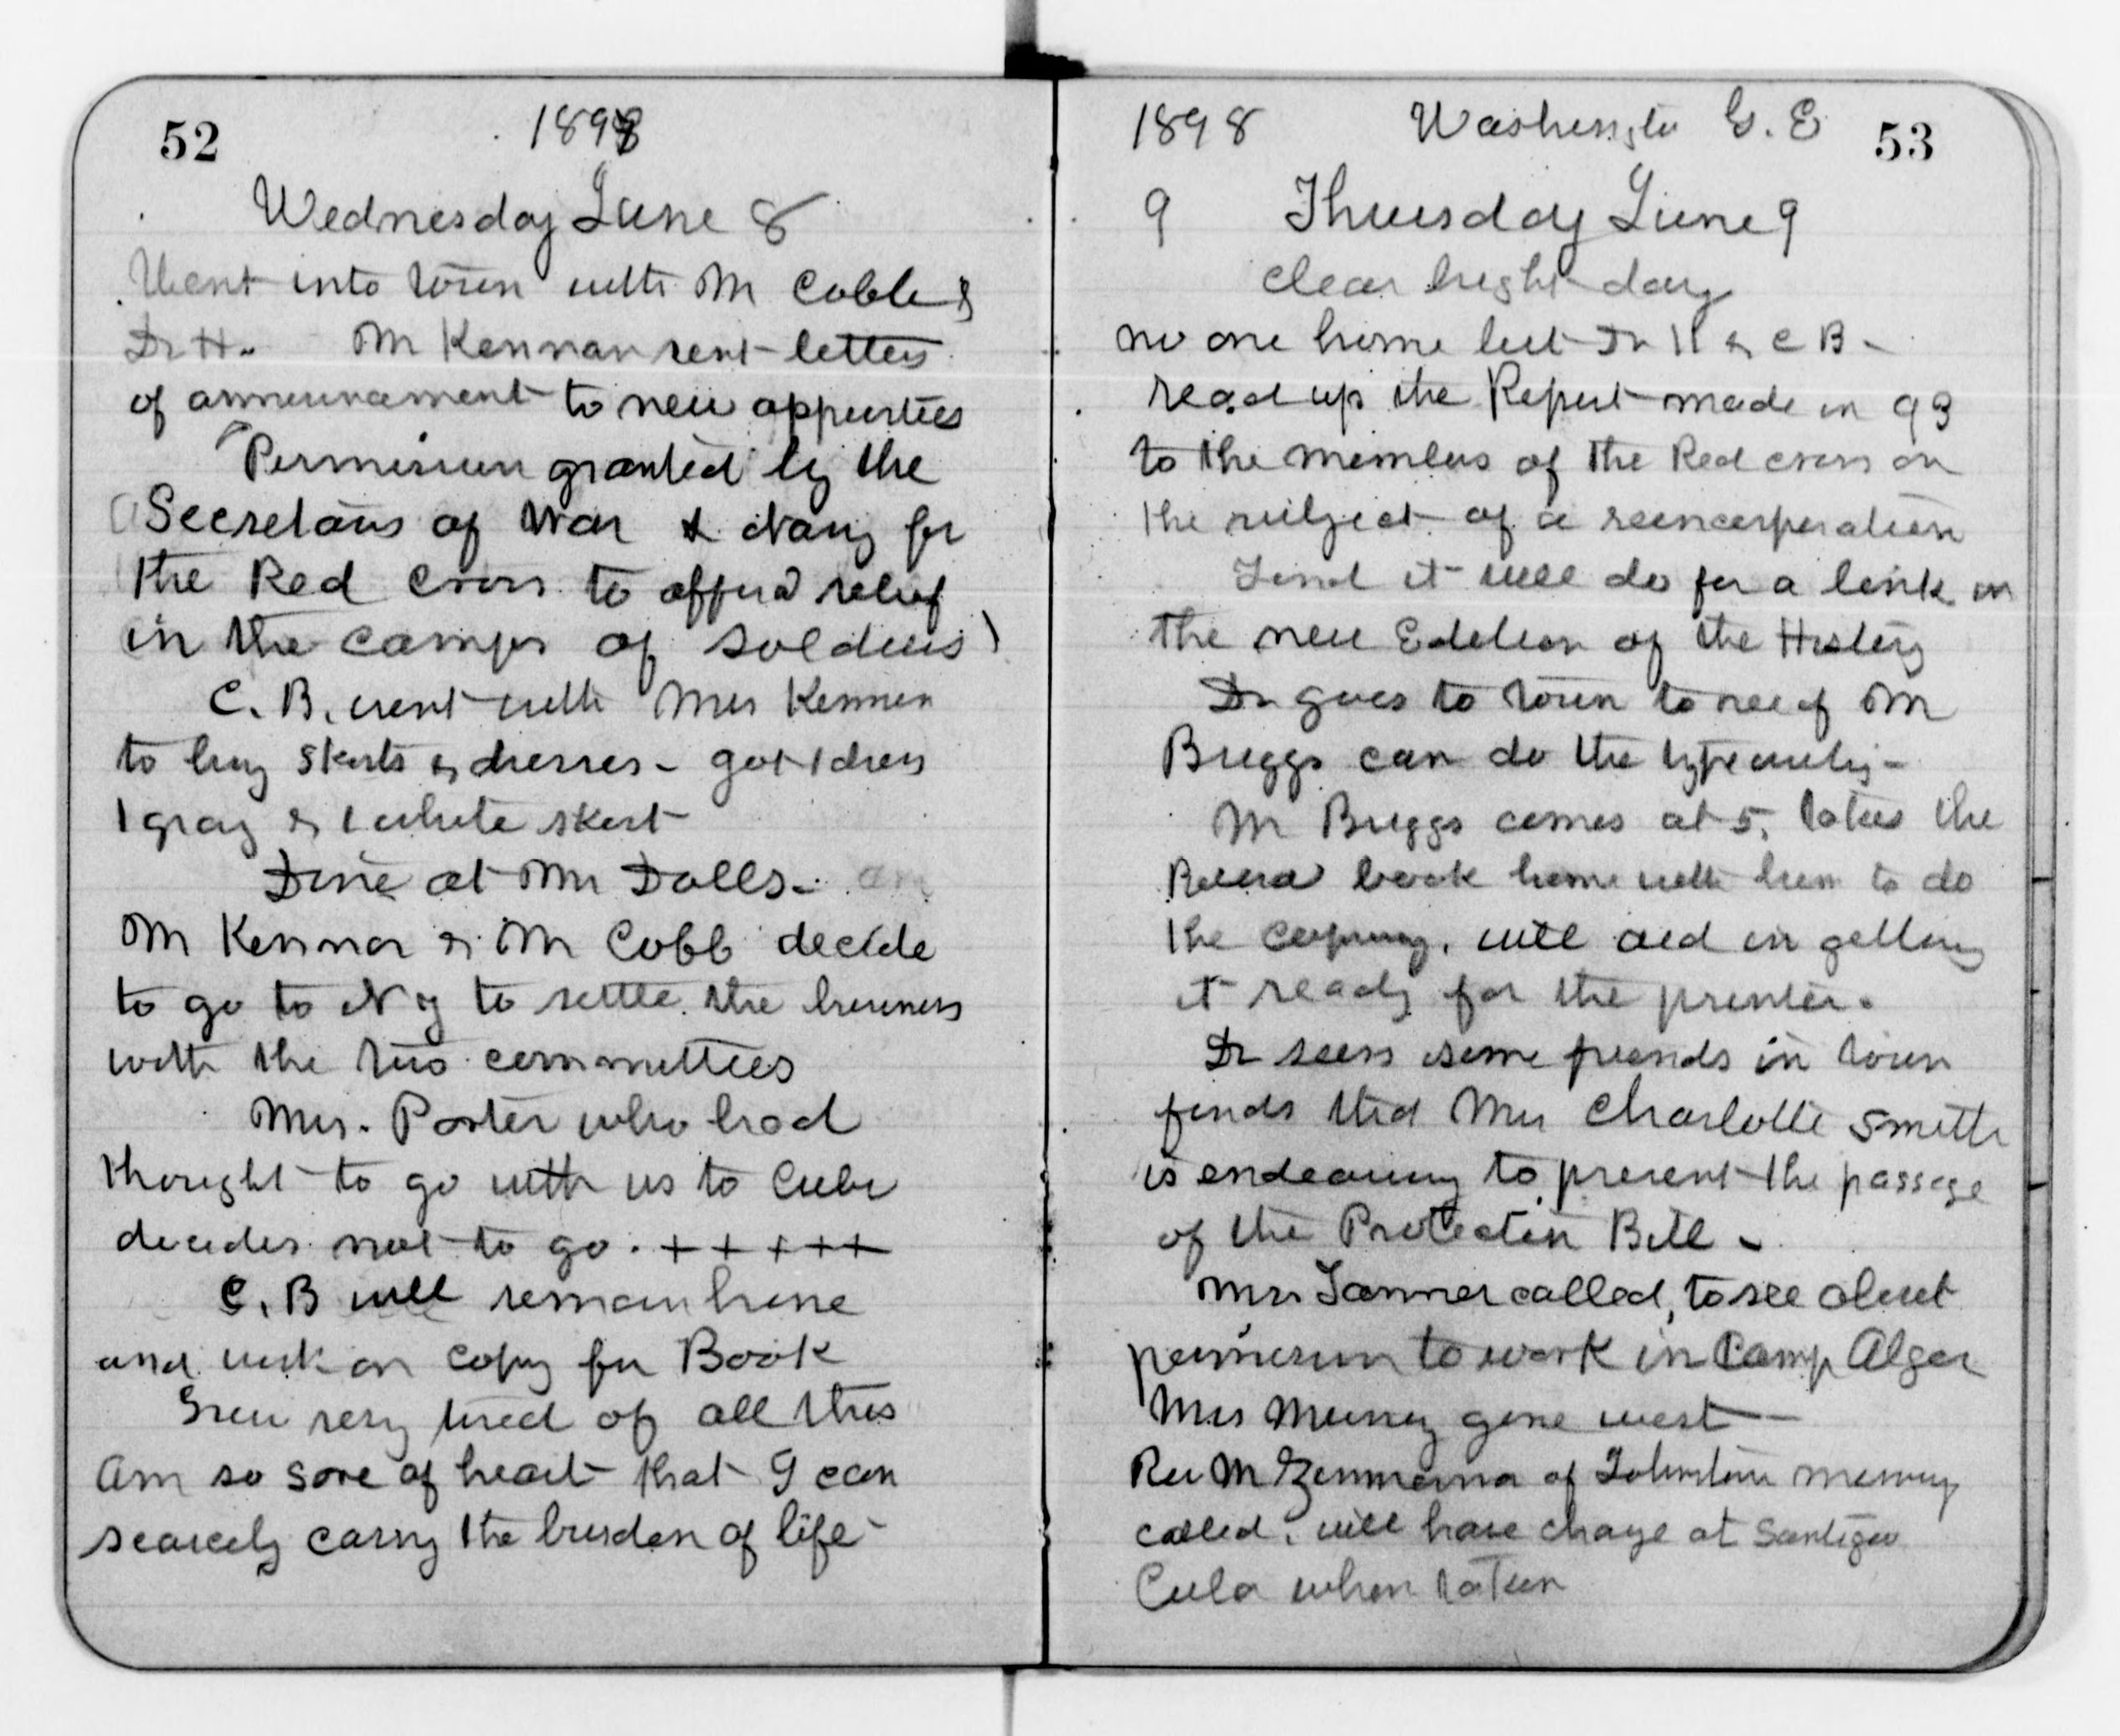 52
1898
Wednesday June 8
Went into town with Mr Cobb &
Dr H. Mr Kennan sent letters
of announcement to new appointees
"Permission granted by the
Secretaries of War & Navy for
the Red Cross to afford relief
in the camps of soldiers)
C. B. went with Mrs Kennan
to buy skirts & dresses - got 1 dress
1 gray & 1 white skirt
Dine at Mrs Dalls -
Mr Kennan & Mr Cobb decide
to go to N Y to settle the business
with the two committees
Mrs. Porter who had
thought to go with us to Cuba
decides not to go. + + + + +
C. B will remain home
and work on copy for Book
Grew very tired of all this
Am so sore of heart that I can
scarcely carry the burden of life -
1898 Washington G. E
53
9 Thursday June 9
clear bright day
no one home but Dr H & C B -
read up the Report made in 93
to the members of the Red cross on
the subject of a reincorporation
Find it will do for a link in
the new Edition of the History
Dr goes to town to see if Mr
Briggs can do the typewriting -
Mr Briggs comes at 5, takes the
Record book home with him to do
the copying, will aid in getting
it ready for the printer.
Dr sees some friends in town
finds that Mrs Charlotte Smith
is endeavoring to prevent the passage
of the Protection Bill -
Mrs Tanner called, to see about
permission to work in Camp Alger
Mrs Mussey gone west -
Rev Mr Zimmerman of Johnstown memory
called, will have charge at Santiago
Cuba when taken